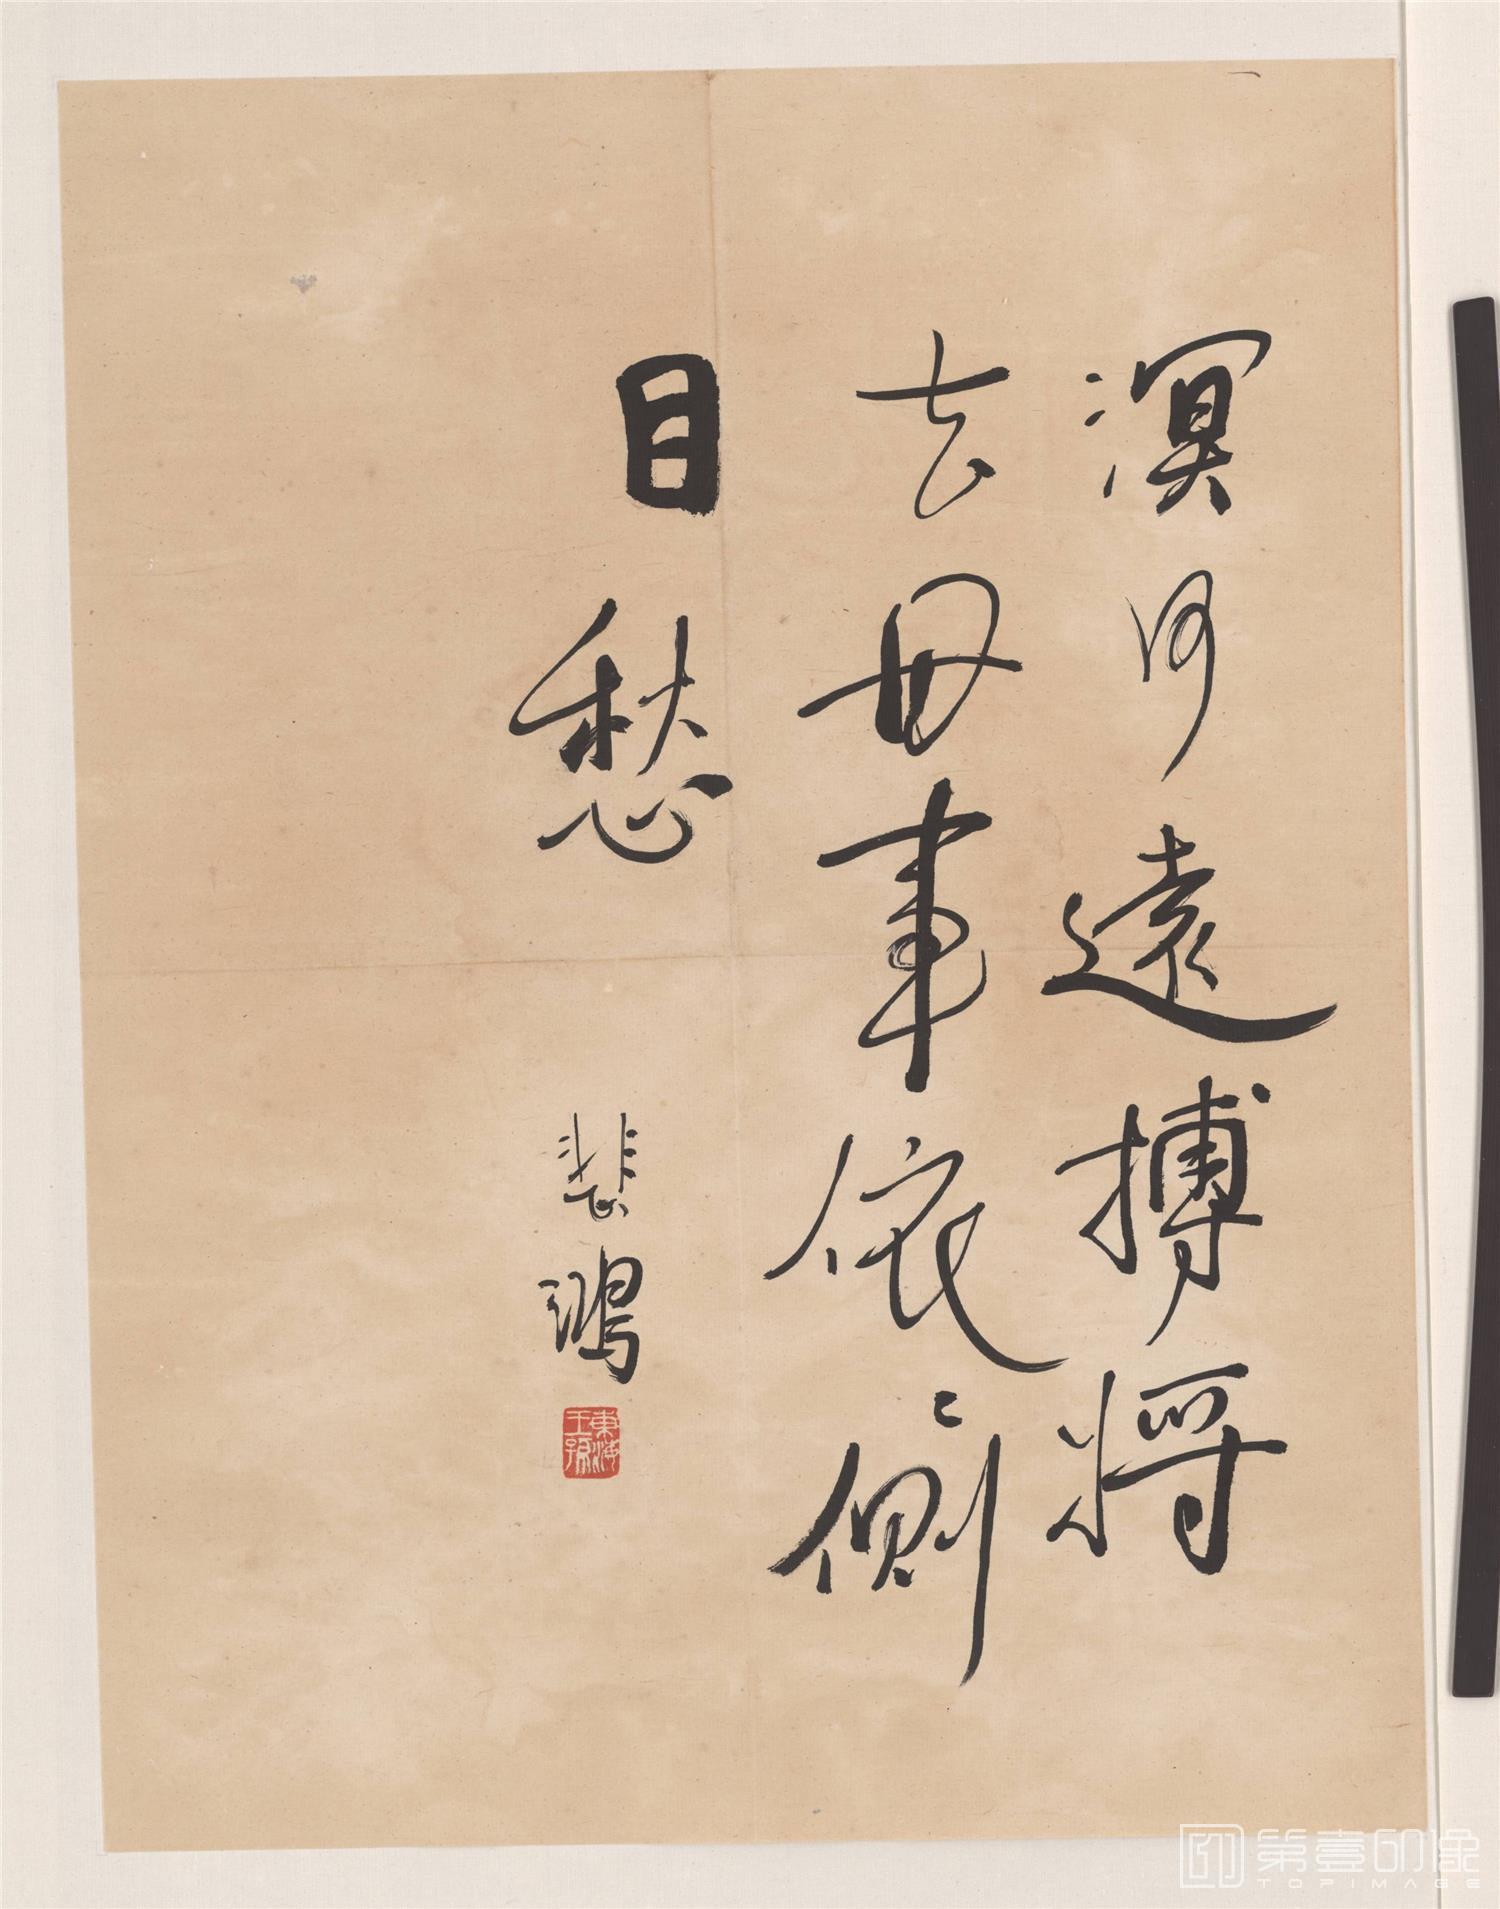 溟何遠搏將
去毋事依々側
目愁
悲鴻
東海王孫
第壹印像
TOPIMAGE